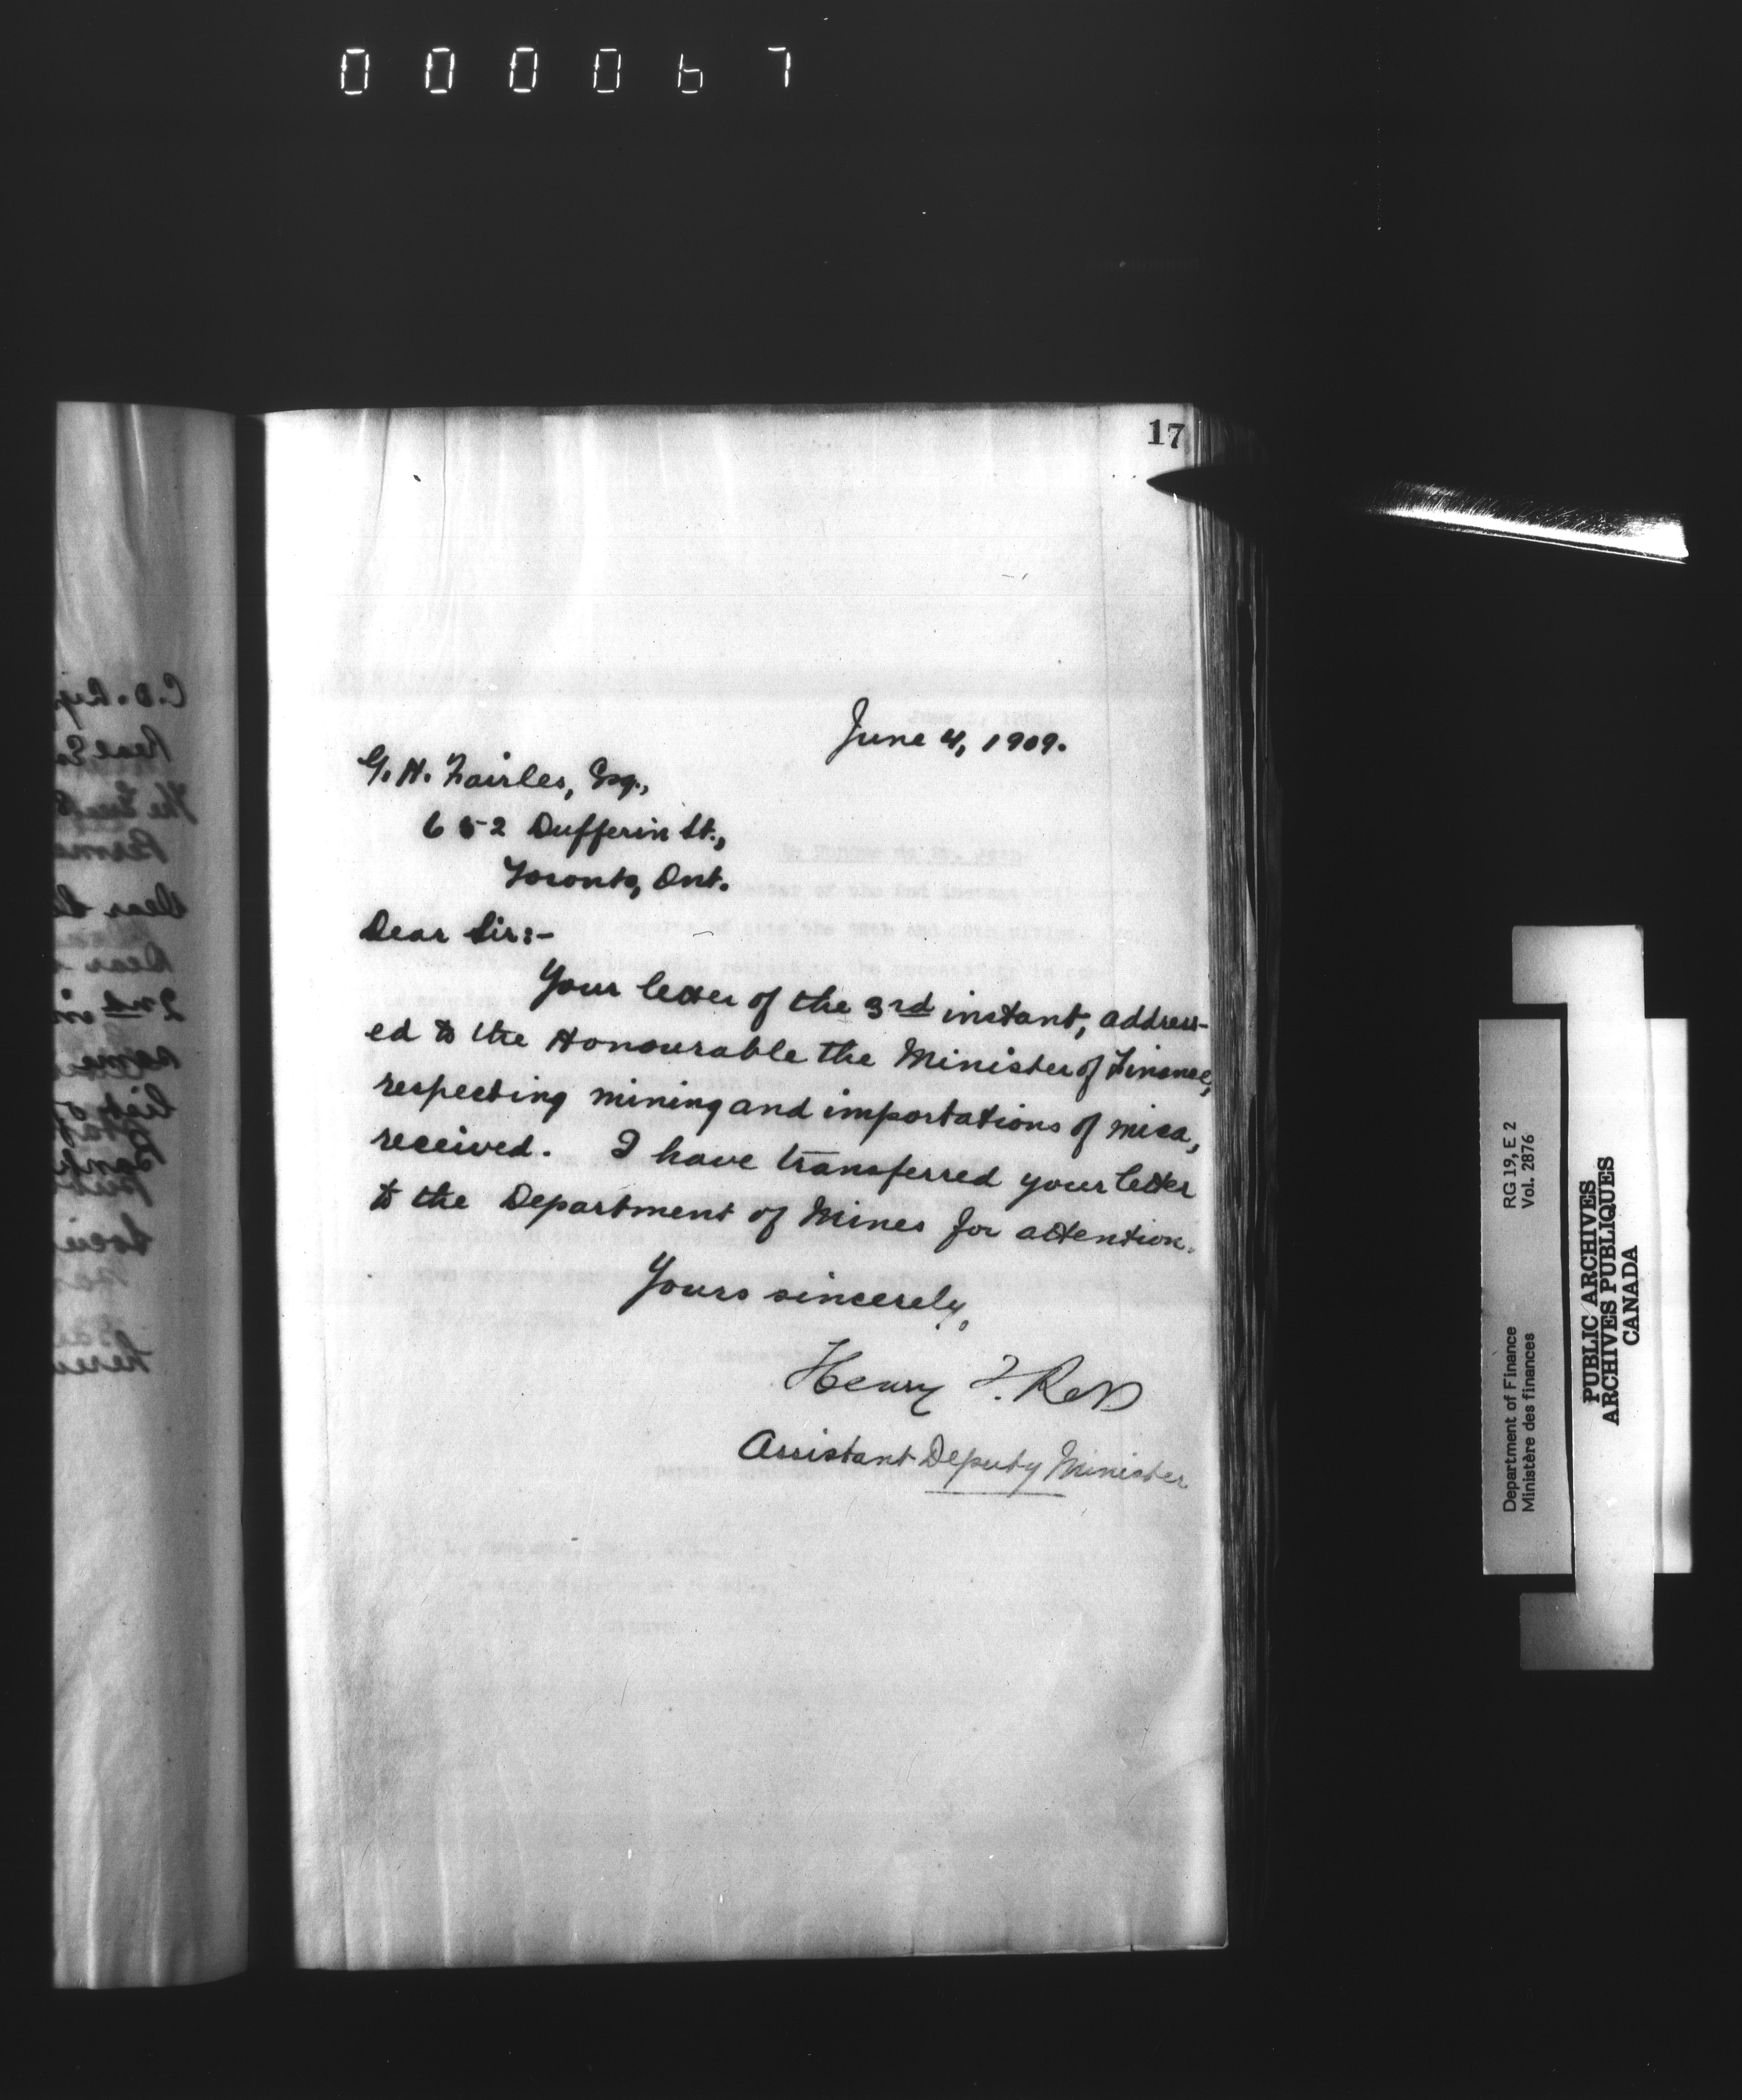 000067
17
June 4, 1909.
G. H. Fairles, Esq.,
652 Dufferin St.,
Toronto, Ont.
Dear Sir:-
Your letter of the 3rd instant, address-
ed to the Honourable the Minister of Finance,
respecting mining and importations of mica,
received. I have transferred your letter
to the Department of Mines for attention.
Yours sincerely,
Henry T. Ross
Assistant Deputy Minister
Department of Finance RG 19, E 2
Ministère des finances Vol. 2876
PUBLIC ARCHIVES
ARCHIVES PUBLIQUES
CANADA